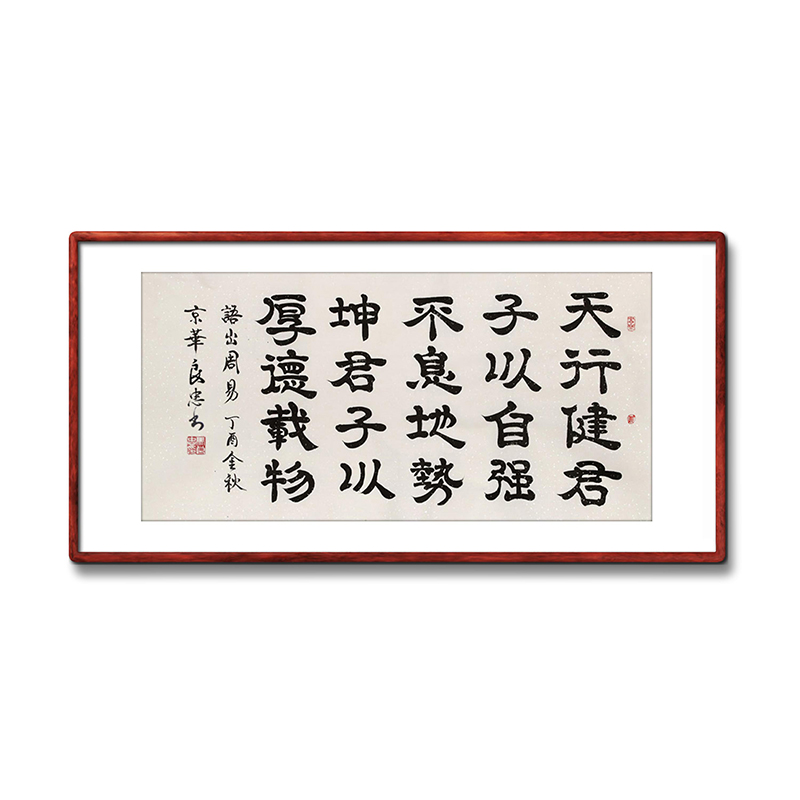 天行健君
子以自强
不息地勢
坤君子以
厚德載物
語出周易丁酉金秋
京華良忠书